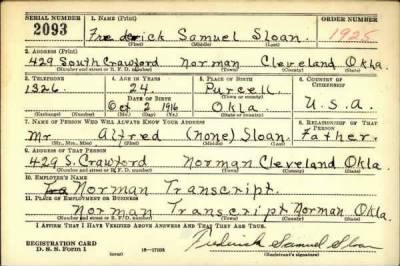 SERIAL NUMBER 1. NAME (Print) ORDER NUMBER
2093 Frederick Samuel Sloan 1925
(First) (Middle) (Last)
2. ADDRESS (Print)
429 South Crawford Norman Cleveland Okla.
(Number and street or R. F. D. number) (Town) (County) (State)
3. TELEPHONE 4. AGE IN YEARS 5. PLACE OF BIRTH 6. COUNTRY OF CITIZENSHIP
1326 24 Purcell
DATE OF BIRTH (Town or county)
Oct 2 1916 Okla. U.S.A.
(Exchange) (Number) (Mo.) (Day) (Yr.) (State or country)
7. NAME OF PERSON WHO WILL ALWAYS KNOW YOUR ADDRESS 8. RELATIONSHIP OF THAT PERSON
Mr Alfred (none) Sloan. Father.
(Mr., Mrs., Miss) (First) (Middle) (Last)
9. ADDRESS OF THAT PERSON
429 S. Crawford Norman Cleveland Okla.
(Number and street or R. F. D. number) (Town) (County) (State)
10. EMPLOYER'S NAME
Norman Transcript.
11. PLACE OF EMPLOYMENT OR BUSINESS
Norman Transcript Norman Okla.
(Number and street or R. F. D. number) (Town) (County) (State)
I AFFIRM THAT I HAVE VERIFIED ABOVE ANSWERS AND THAT THEY ARE TRUE.
REGISTRATION CARD
D. S. S. Form 1 16—17105 Frederick Samuel Sloan